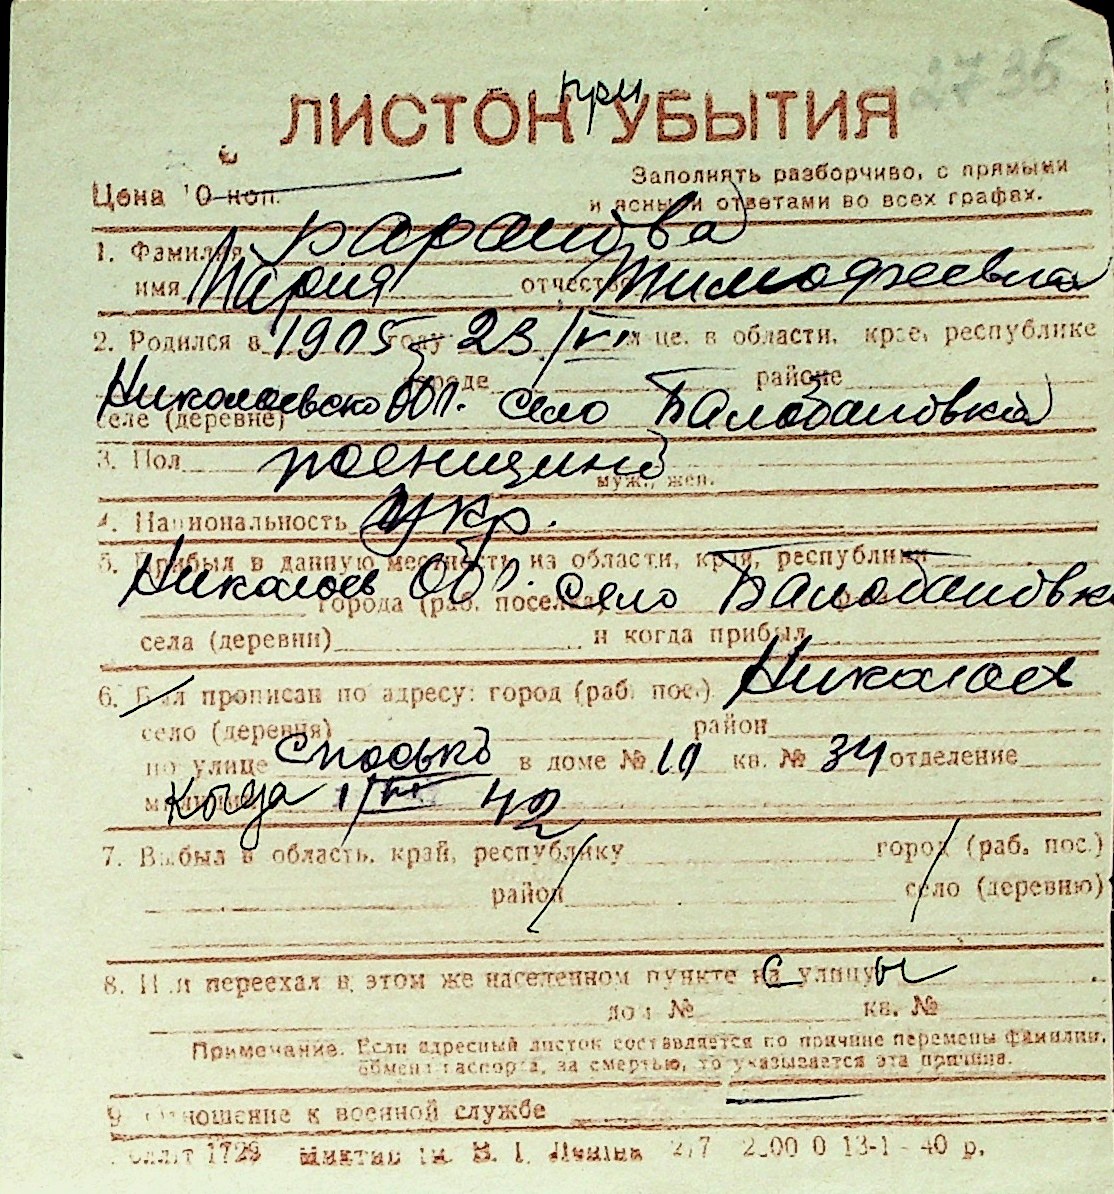 2735
при
ЛИСТОК УБЫТИЯ
Цена 10 коп.
Заполнять разборчиво, с прямыми
и ясными ответами во всех графах.
1. Фамилия Баранова
имя Мария отчество Тимофеевна
2. Родился в 1905 году 23/VI м-це, в области, крае, республике
городе районе
Николаевско Обл. село Балабановка
селе (деревне)
3. Пол женщина
муж., жен.
4. Национальность Укр.
5. Прибыл в данную местность из области, края, республики
Николаев Обл. село Балабановка
города (раб. поселка)
села (деревни) и когда прибыл
6. Был прописан по адресу: город (раб. пос.) Николаев
село (деревня) район
по улице Спаськъ в доме № 19 кв. № 34 отделение
милиции Когда 1/VII 42
7. Выбыл в область, край, республику город (раб. пос.)
район село (деревню)
8. Или переехал в этом же населенном пункте на с улицу ы
дом № кв. №
Примечание. Если адресный листок составляется по причине перемены фамилии,
обмена паспорта, за смертью, то указывается эта причина.
9. Отношение к военной службе
1729 им. В. І. Леніна 217 13-1-40 р.